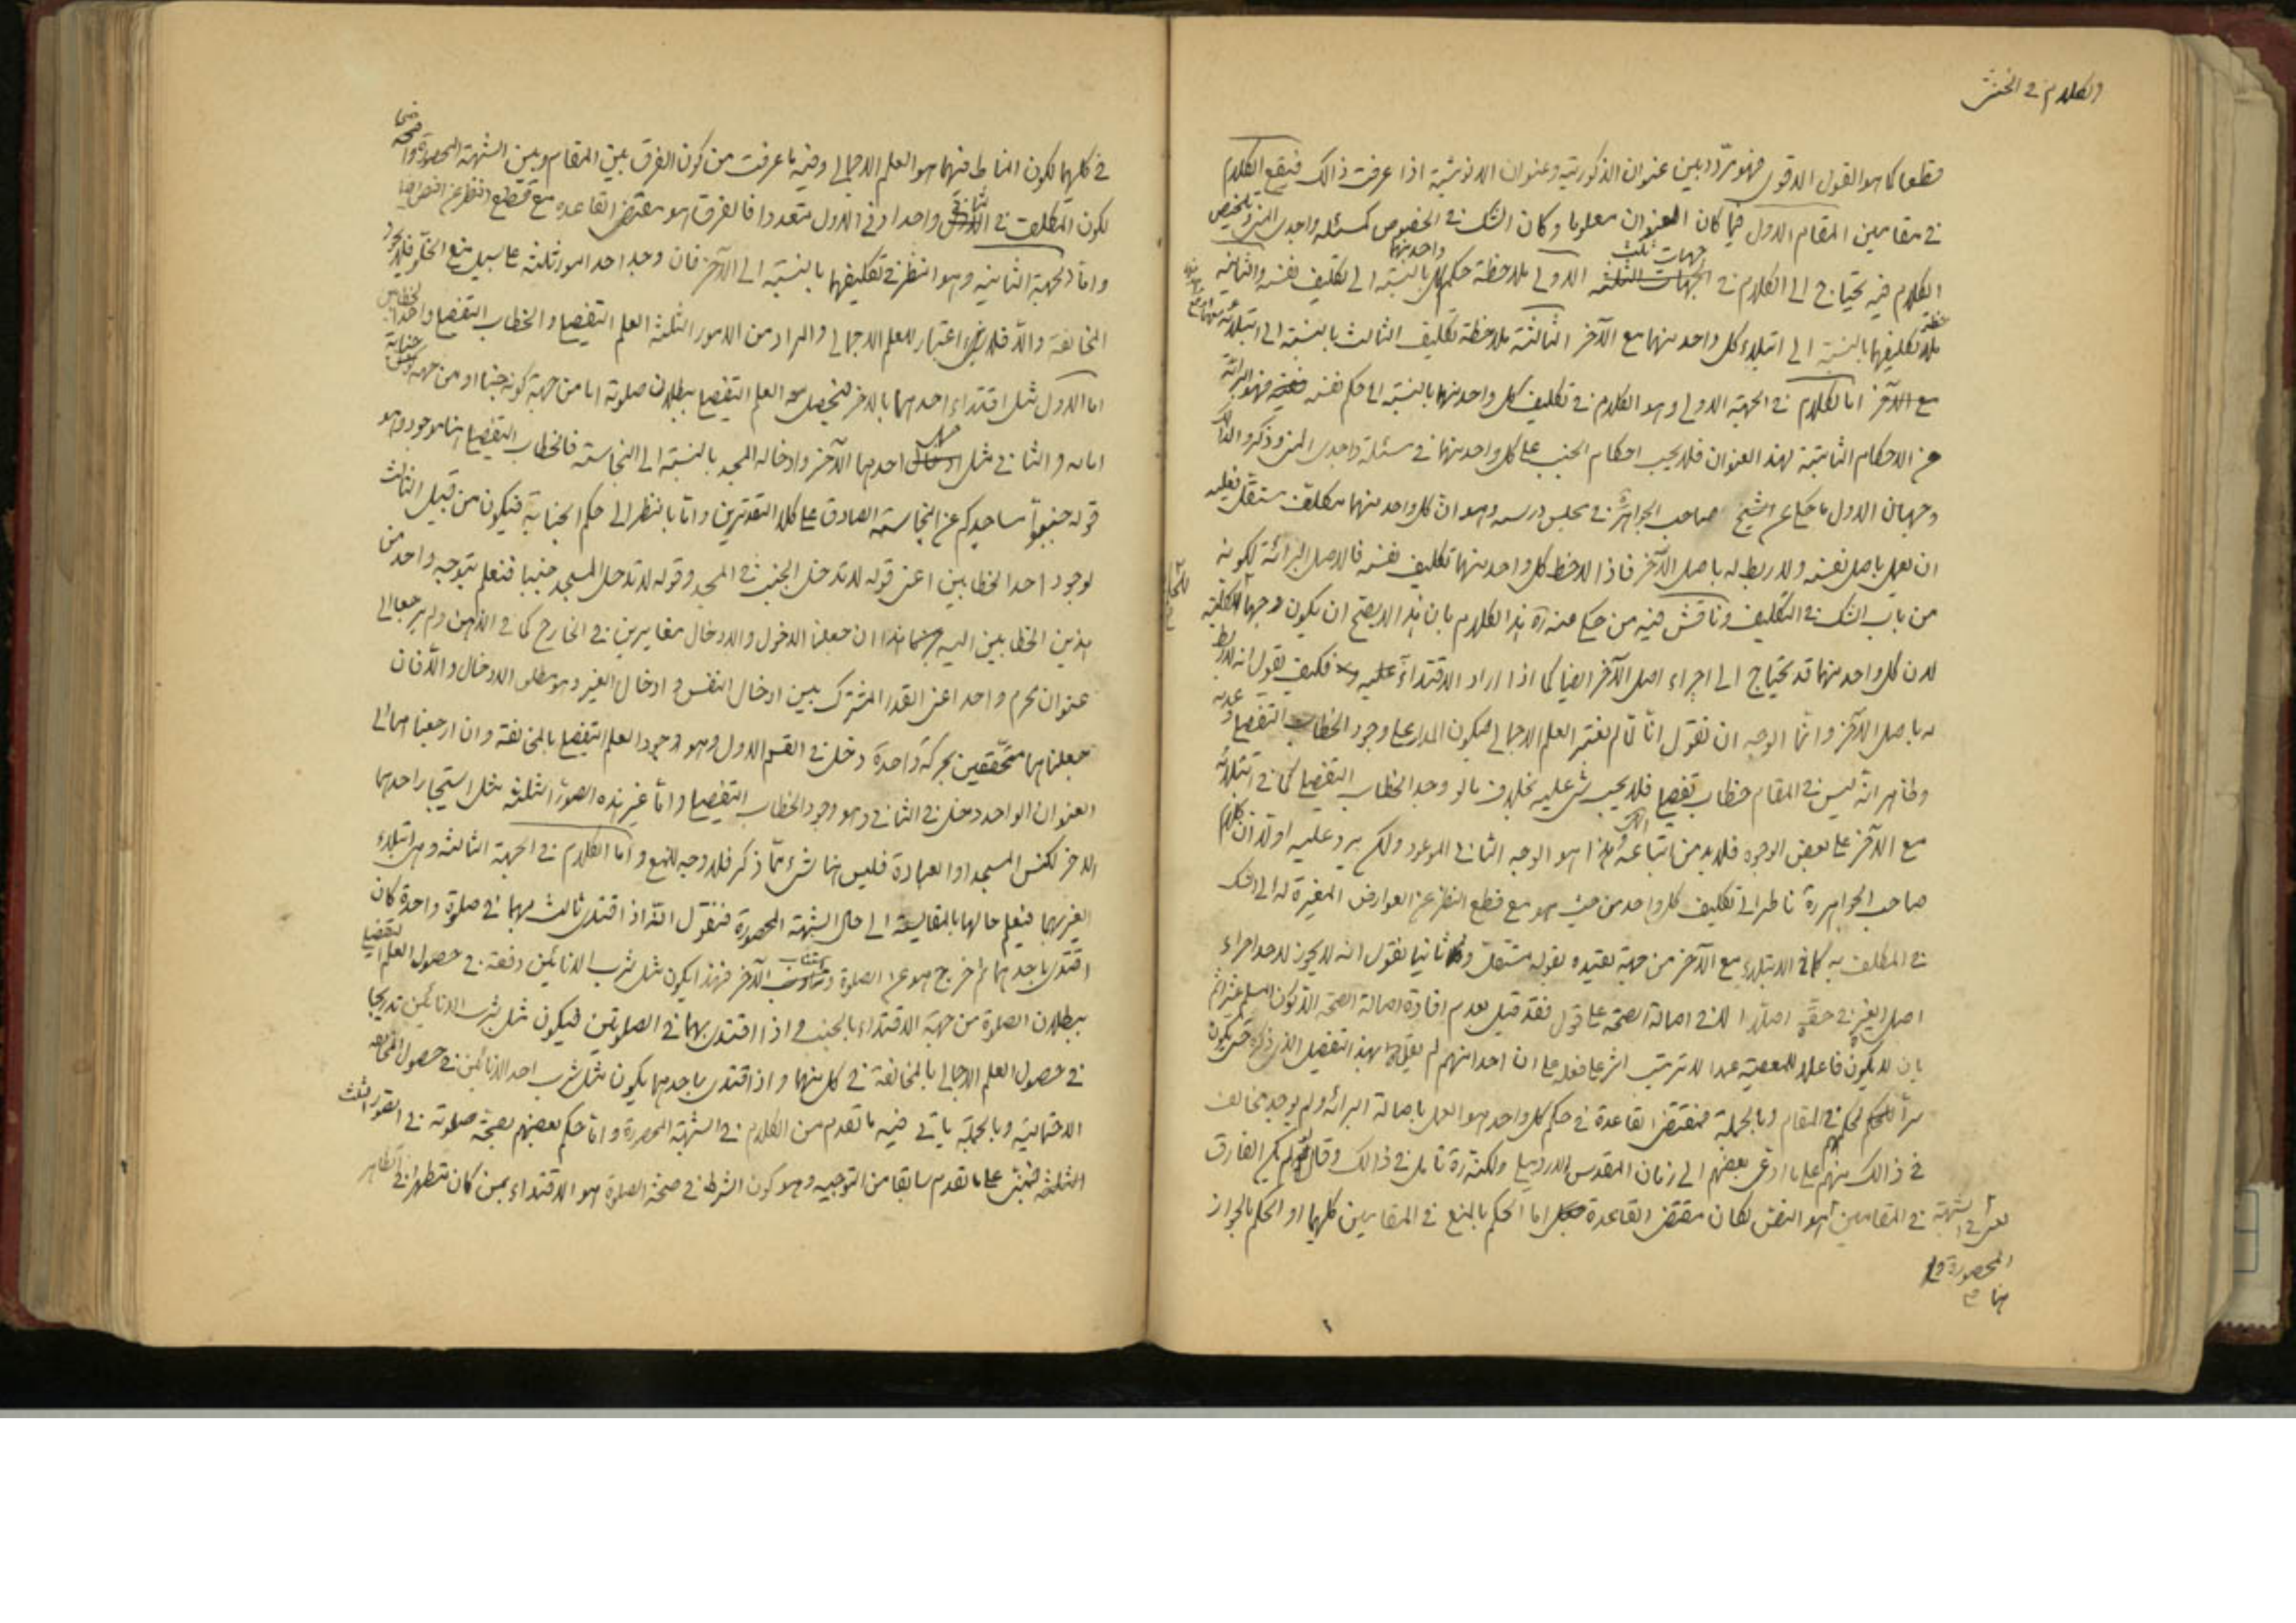 والكلام في الخنثى
قطعا كما هو القول الاقوى فهو مردد بين عنوان الذكورية وعنوان الانوثية اذا عرفت ذالك فيقع الكلام
في مقامين المقام الاول فيما كان العنوان معلوما وكان الشك في الخصوص كمسئلة واجدى المني وتلخيص
الكلام فيه يحتاج الى الكلام في جهات ثلث الاولى ملاحظة حكم كل واحد منهما بالنسبة الى تكليف نفسه والثانية
ملاحظة تكليفهما بالنسبة الى ابتلاء كل واحد منهما مع الآخر الثالثة ملاحظة تكليف الثالث بالنسبة الى ابتلائه
مع الآخر اما الكلام في الجهة الاولى وهو الكلام في تكليف كل واحد منهما بالنسبة الى حكم نفسه فهو البرائة
عن الاحكام الثابتة لهذا العنوان فلا يجب احكام الجنب على كل واحد منهما في مسئلة واجدى المني وذكروا لذالك
وجهان الاول ما حكي عن الشيخ صاحب الجواهر ره في مجلس درسه وهو ان كل واحد منهما مكلف مستقل فعليه
ان يعمل باصل نفسه ولا ربط له باصل الآخر فاذا لاحظ كل واحد منهما تكليف نفسه فالاصل البرائة لكونه
من باب الشك في التكليف وناقش فيه من حكى عنه ره هذا الكلام بان هذا لا يصح ان يكون وجها
لان كل واحد منهما قد يحتاج الى اجراء اصل الآخر ايضا كما اذا اراد الاقتداء عليه فكيف يقول انه لا ربط
له باصل الآخر وانما الوجه ان نقول انا لم نعتبر العلم الاجمالي فيكون المدار على وجود الخطاب التفصيلي وعدمه
وظاهر انه ليس في المقام خطاب تفصيلي فلا يجب شئ عليه بخلاف ما لو وجد الخطاب التفصيلي كما في ابتلائه
مع الآخر على بعض الوجوه فلا بد من اتباعه وهذا هو الوجه الثاني الموعود ولكن يرد عليه اولا ان كلام
صاحب الجواهر ره ناظر الى تكليف كل واحد من حيث هو مع قطع النظر عن العوارض المغيرة له
في المكلف به كما في الابتلاء مع الآخر من جهة تقييده بقوله مستقل وثانيا نقول انه لا يجوز لاحد اجراء
اصل الغير في حقه اصلا الا في اصالة الصحة على قول فقد قيل بعدم افادة اصالة الصحة الا كون المسلم غير آثم
بان لا يكون فاعلا للمعصية عمدا لا ترتيب اثر على فعله على ان احدا منهم لم يقل بهذا التفصيل الذي ذكره حتى يكون
في المقام وبالجملة فمقتضى القاعدة في حكم كل واحد هو العمل باصالة البرائة ولم يوجد مخالف
في ذالك منهم على ما ادعى بعضهم الى زمان المقدس الاردبيلي ولكنه ره تامل في ذالك وقال لو لم يكن الفارق
في المقامين هو النص لكان مقتضى القاعدة اما الحكم بالمنع في المقامين كليهما او الحكم بالجواز
في كليهما لكون المناط فيهما هو العلم الاجمالي وفيه ما عرفت من كون الفرق بين المقام وبين الشبهة المحصورة واضحا
لكون المكلف في الثاني واحدا وفي الاول متعددا فالفرق هو مقتضى القاعدة مع قطع النظر عن النص ايضا
واما الجهة الثانية وهو النظر في تكليفهما بالنسبة الى الآخر فان وجد احد امور ثلثة على سبيل منع الخلو فلا يجوز
المخالفة والا فلا اعتبار للعلم الاجمالي والمراد من الامور الثلثة العلم التفصيلي والخطاب التفصيلي واحد الخطابين
اما الاول مثل اقتداء احدهما بالاخر فيحصل العلم التفصيلي ببطلان صلوته اما من جهة كونه جنبا او من جهة جنابة
امامه والثاني مثل ادخال احدهما الآخر وادخاله المسجد بالنسبة الى النجاسة فالخطاب التفصيلي هنا موجود وهو
قوله جنبوا مساجدكم عن النجاسة الصادق على كلا التقديرين واما بالنظر الى حكم الجنابة فيكون من قبيل الثالث
لوجود احد الخطابين اعني قوله لا تدخل الجنب في المسجد وقوله لا تدخل المسجد جنبا فنعلم بتوجه واحد من
هذين الخطابين اليه هذا ان جعلنا الدخول والادخال مغايرين في الخارج كما في الذهن ولم يرجعا الى
عنوان محرم واحد اعني القدر المشترك بين ادخال النفس وادخال الغير وهو مطلق الادخال والا فان
جعلناهما متحققين بحركة واحدة دخل في القسم الاول وهو وجود العلم التفصيلي بالمخالفة وان ارجعناهما الى
العنوان الواحد دخل في الثاني وهو وجود الخطاب التفصيلي واما غير هذه الصور الثلثة مثل استيجار احدهما
الاخر لكنس المسجد او العبادة فليس هنا شئ مما ذكر فلا وجه للمنع واما الكلام في الجهة الثالثة وهي ابتلاء
الغير بهما فيعلم حالها بالمقايسة الى حال الشبهة المحصورة فنقول انه اذا اقتدى ثالث بهما في صلوة واحدة كان
اقتدى باحدهما ثم خرج هو عن الصلوة وناب الآخر فهذا يكون مثل شرب الانائين دفعة في حصول العلم التفصيلي
ببطلان الصلوة من جهة الاقتداء بالجنب واذا اقتدى بهما في الصلوتين فيكون مثل شرب الانائين تدريجا
في حصول العلم الاجمالي بالمخالفة في كل منهما واذا اقتدى باحدهما يكون مثل شرب احد الانائين في حصول المخالفة
الاحتمالية وبالجملة ياتي فيه ما تقدم من الكلام في الشبهة المحصورة واما حكم بعضهم بصحة صلوته في الصور الثلث
الثلثة فمبني على ما تقدم سابقا من التوجيه وهو كون الشرط في صحة الصلوة هو الاقتداء بمن كان متطهرا في الظاهر